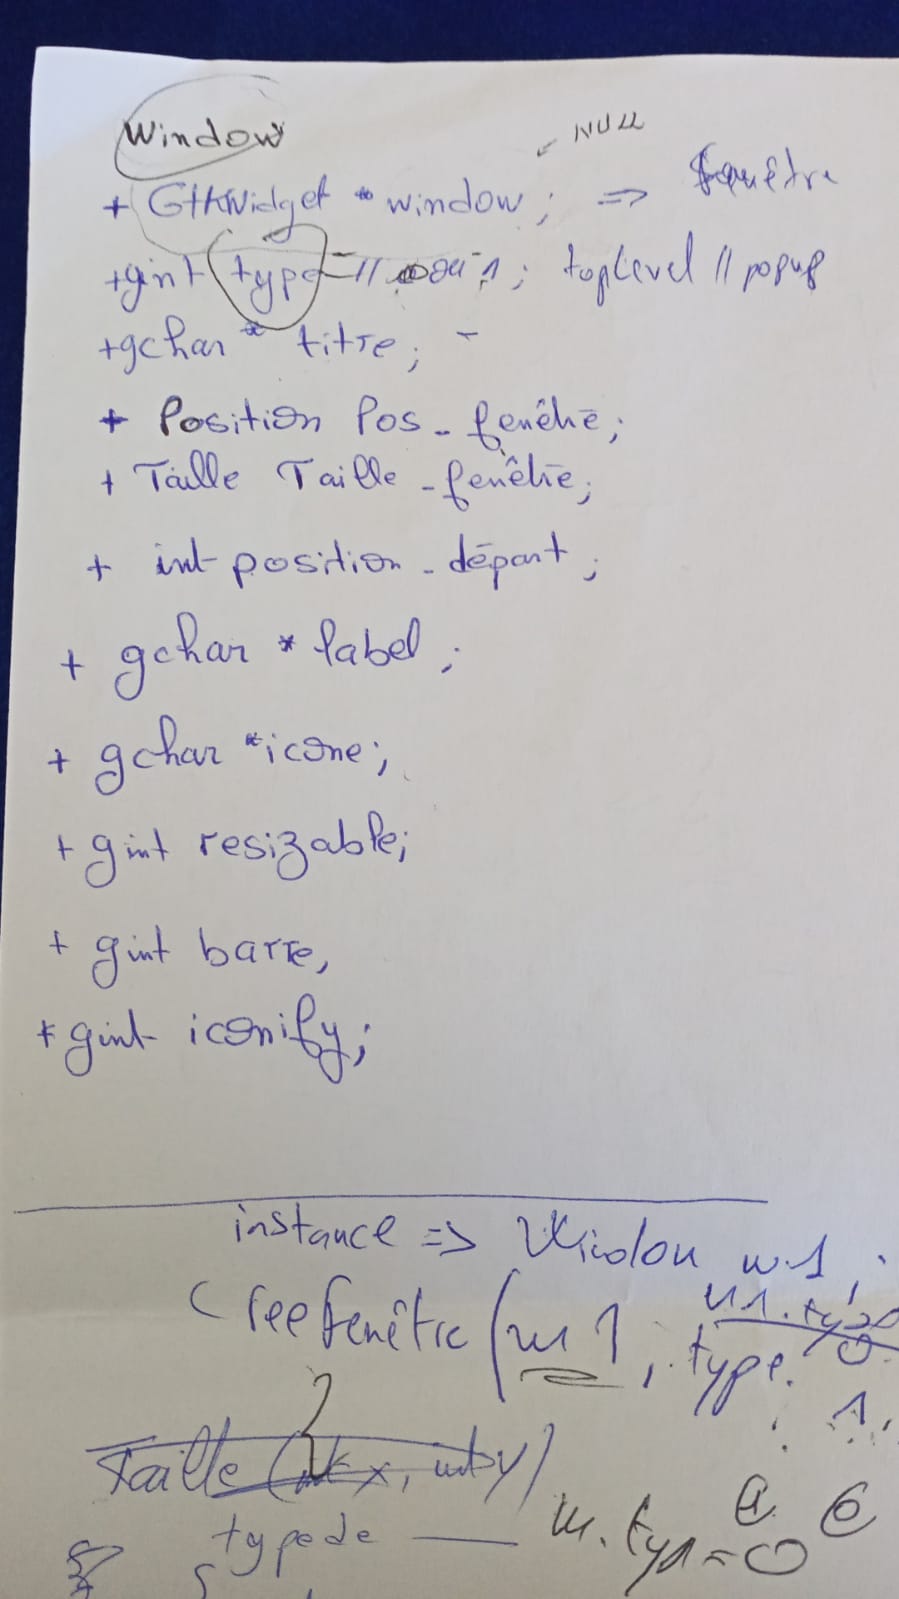 Window
NULL
+ GtkWidget * window; => fenêtre
+gint type = // 0 ou 1; toplevel // popup
+gchar * titre;
+ Position Pos_fenêtre;
+ Taille Taille_fenêtre;
+ int position_départ;
+ gchar * label;
+ gchar *icone;
+ gint resizable;
+ gint barre,
* gint iconify;
instance => Window w1
CreeFenêtre (w1, type.
Taille (
typede